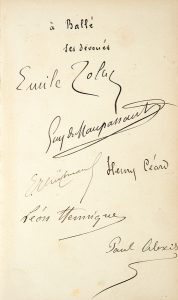 à Ballé
ses dévoués
Emile Zola
Guy de Maupassant
JKHuysmans
Henry Céard
Léon Hennique
Paul Alexis